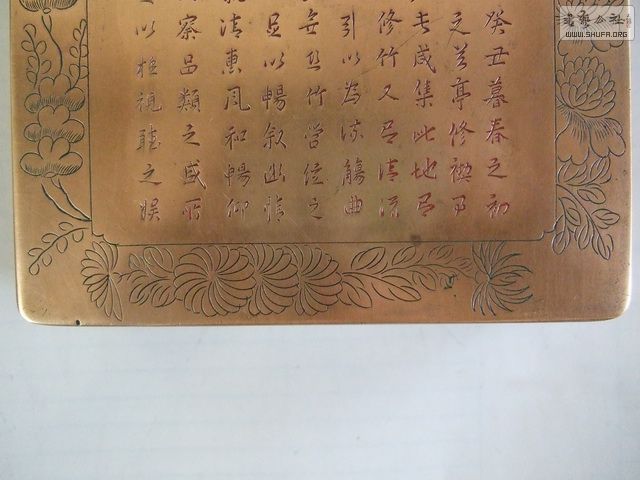 癸丑暮春之初
之兰亭修禊事
長咸集此地有
修竹又有清流
引以為流觴曲
無丝竹管弦之
足以暢叙幽情
清惠風和暢仰
察品類之盛所
以極視聽之娛
書藝公社
WWW.SHUFA.ORG